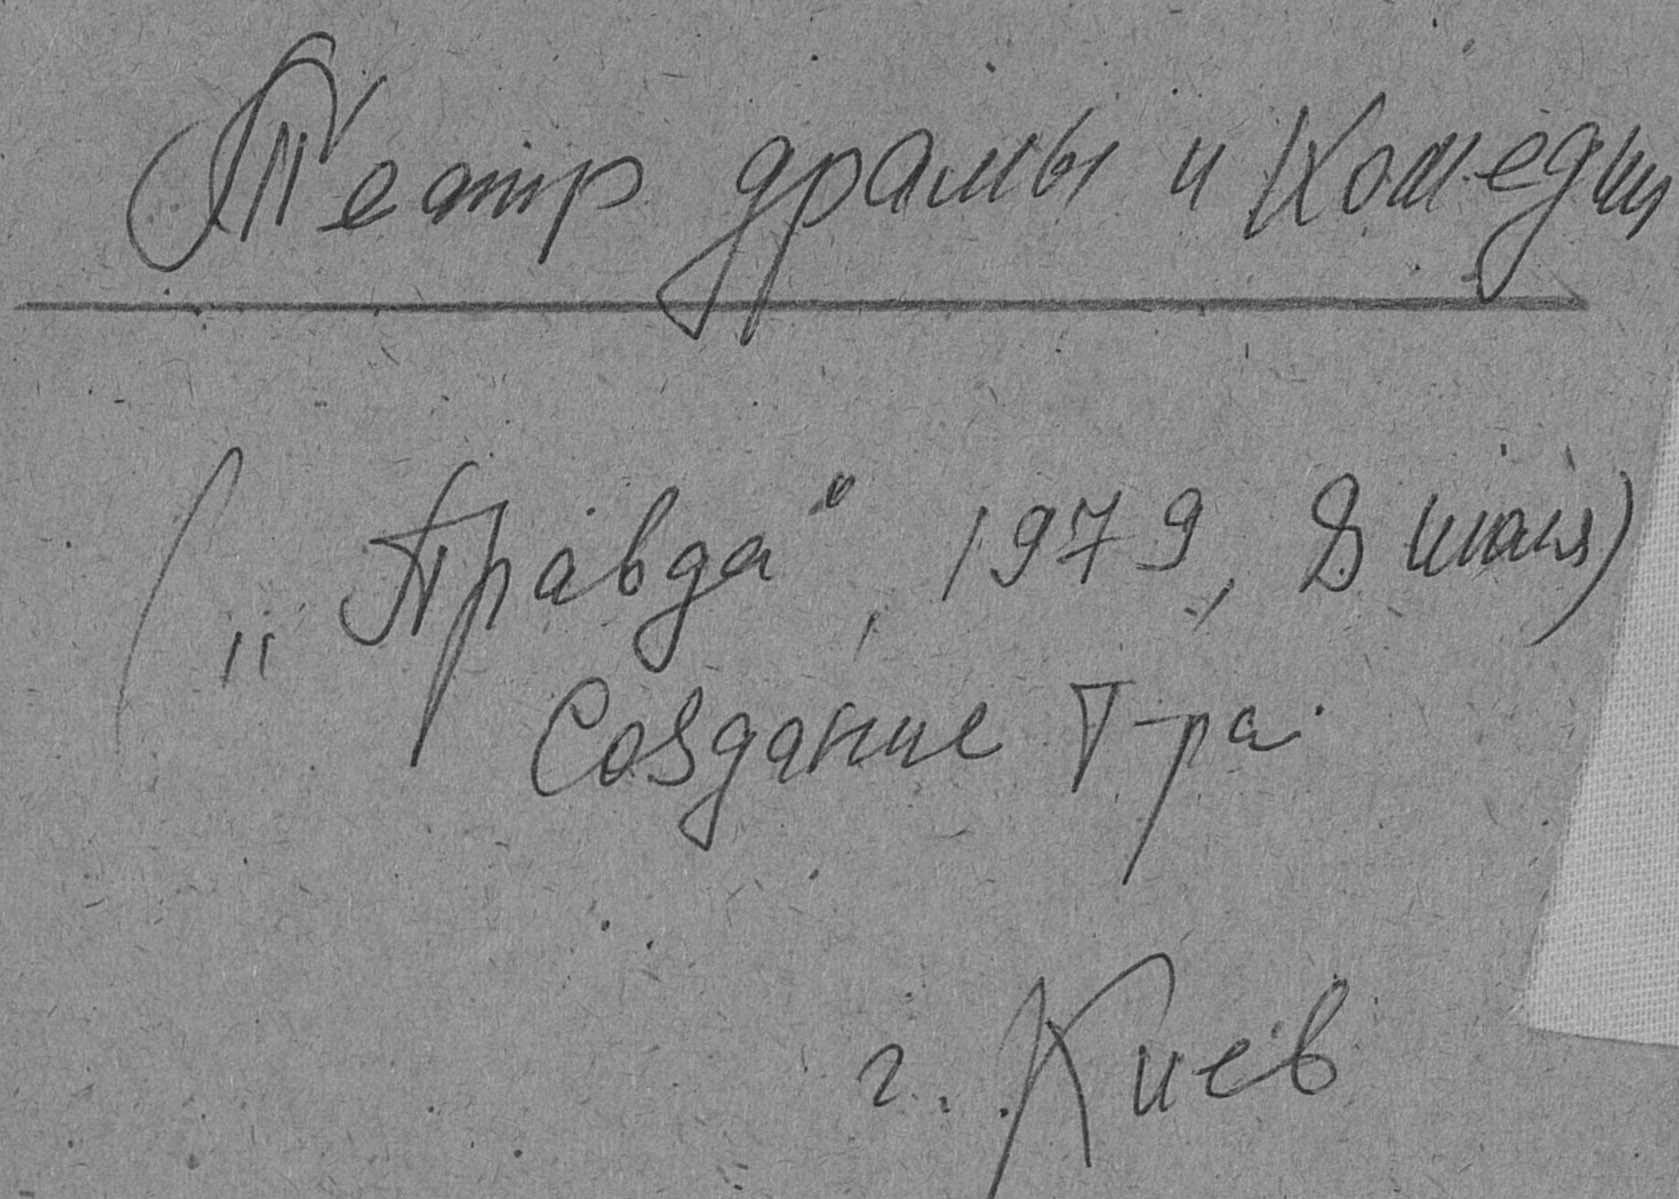 Театр драмы и Комедии
("Правда", 1979, 8
Создание Т-ра
г. Киев